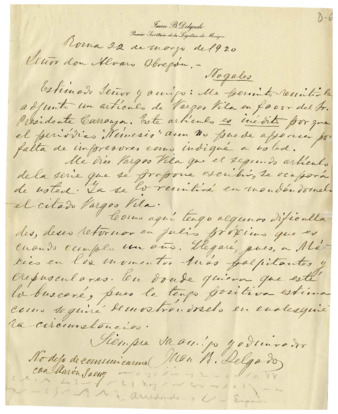 D-6
Juan B. Delgado
Primer Secretario de la Legación de Mexico
Roma 22 de marzo de 1920
Señor don Alvaro Obregón.-
Nogales
Estimado Señor y amigo: Me permito remitirle
adjunto un artículo de Vargas Vila en favor del Sr.
Presidente Carranza. Este artículo es inédito porque
el periódico "Némesis" aun no puede aparecer por
falta de impresores como indiqué a usted.
Me dice Vargas Vila que el segundo artículo
de la serie que se propone escribir, se ocupará
de usted. Ya se lo remitiré en mandándomelo
el citado Vargas Vila.
Como aquí tengo algunas dificulta
des, deseo retornar en julio próximo que es
cuando cumplo un año. Llegaré, pues, a Mé-
xico en los momentos más palpitantes y
crepusculares. En donde quiera que esté
lo buscaré, pues le tengo positiva estima
como seguiré demostrándoselo en cualesquie
ra circunstancias.
Siempre su amigo y admirador
Juan B. Delgado
No deje de comunicarme
con